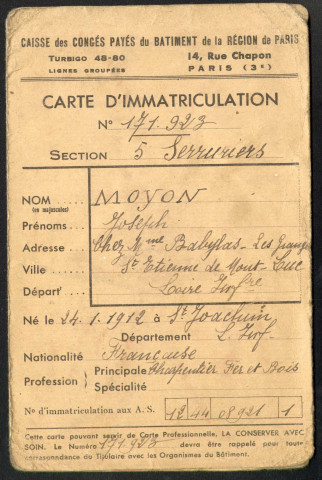 CAISSE des CONGÉS PAYÉS du BATIMENT de la RÉGION de PARIS
TURBIGO 48-80 14, Rue Chapon
LIGNES GROUPÉES PARIS (3e)
CARTE D'IMMATRICULATION
N° 171.923
SECTION 5 Serruriers
NOM MOYON
(en majuscules)
Prénoms Joseph
Adresse Chez Mme Babylas - Les
Ville St Etienne de Mont-Luc
Départt Loire Infre
Né le 24.1.1912 à St Joachim
Département L. Inf.
Nationalité Française
Profession Principale Charpentier Fer et Bois
Spécialité
N° d'immatriculation aux A. S. 12 44 08921 1
Cette carte pouvant servir de Carte Professionnelle, LA CONSERVER AVEC
SOIN. Le Numéro 171923 devra être rappelé pour toute
correspondance du Titulaire avec les Organismes du Bâtiment.